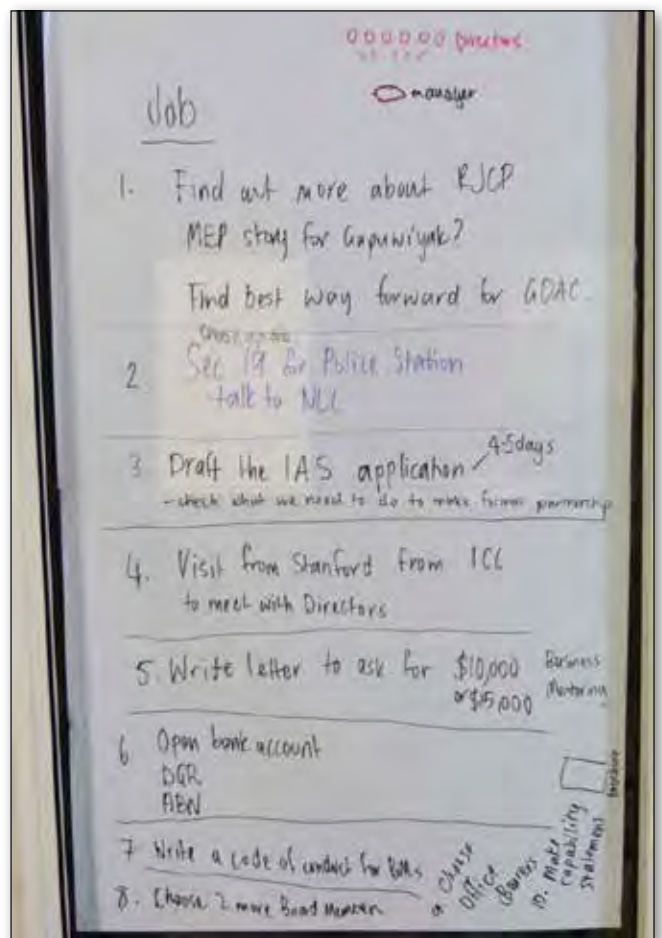 000000 Directors
manager
Job
1. Find out more about RJCP
MEP story for Gapuwiyak?
Find best way forward for GDAC
2 Sec 19 for Police Station
talk to NLC
3 Draft the IAS application
4-5days
- check what we need to do to make formal partnership
4. Visit from Stanford from ICC
to meet with Directors
5. Write letter to ask for $10,000
or $15,000
Business
Mentoring
6 Open bank account
DGR
ABN
7 Write a code of conduct for BoMs
8. Choose 2 more Board Members
9. Choose
Office
Bearers
10. Make
capability
statement
brochure